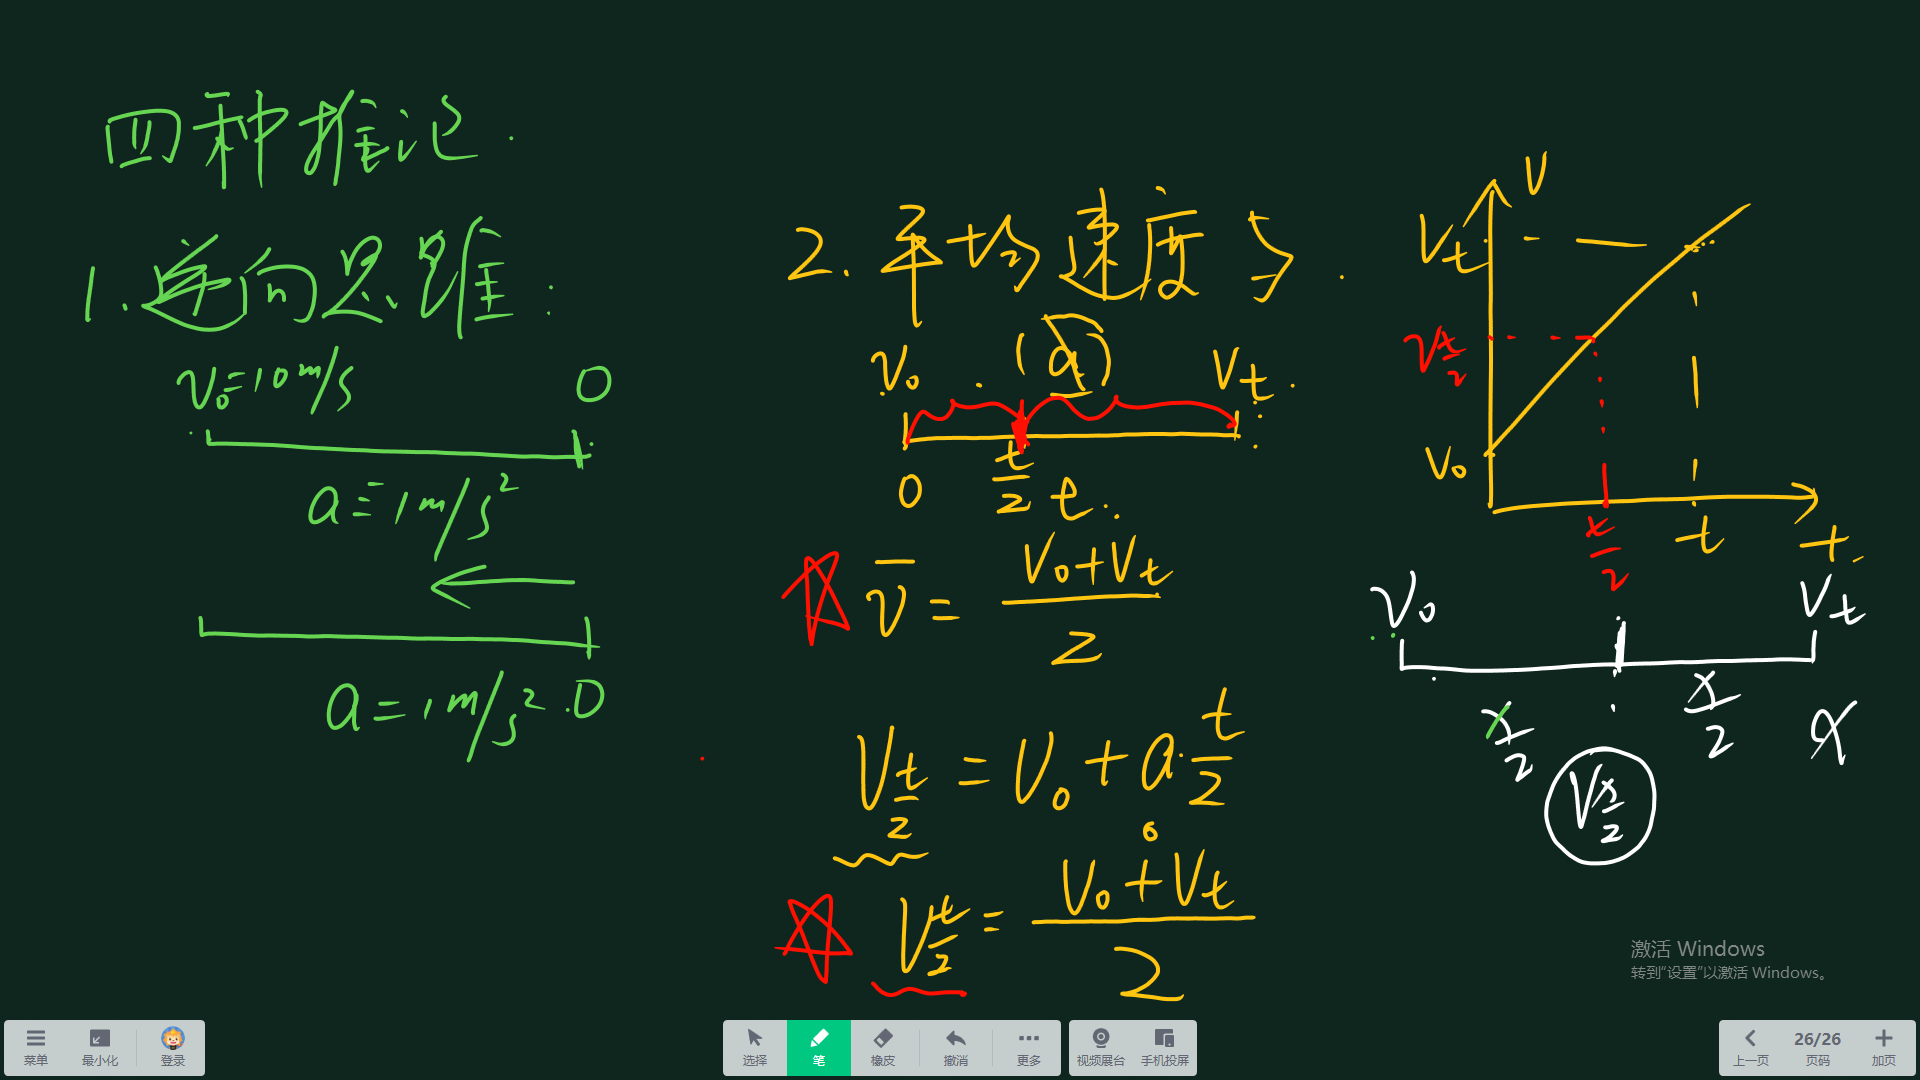 四种推论
1. 逆向思维:
V₀=10m/s 0
a=1m/s²
a=1m/s² 0
2. 平均速度
V₀ (a) Vt
0 t/2 t
V̄ = (V₀+Vt)/2
V t/2 = V₀ + a·t/2
V t/2 = (V₀+Vt)/2
V
Vt
V t/2
V₀
t/2 t t
V₀ Vt
x/2 x/2 x
V x/2
激活 Windows
转到“设置”以激活 Windows。
菜单 最小化 登录
选择 笔 橡皮 撤消 更多
视频展台 手机投屏
上一页 26/26 页码 加页